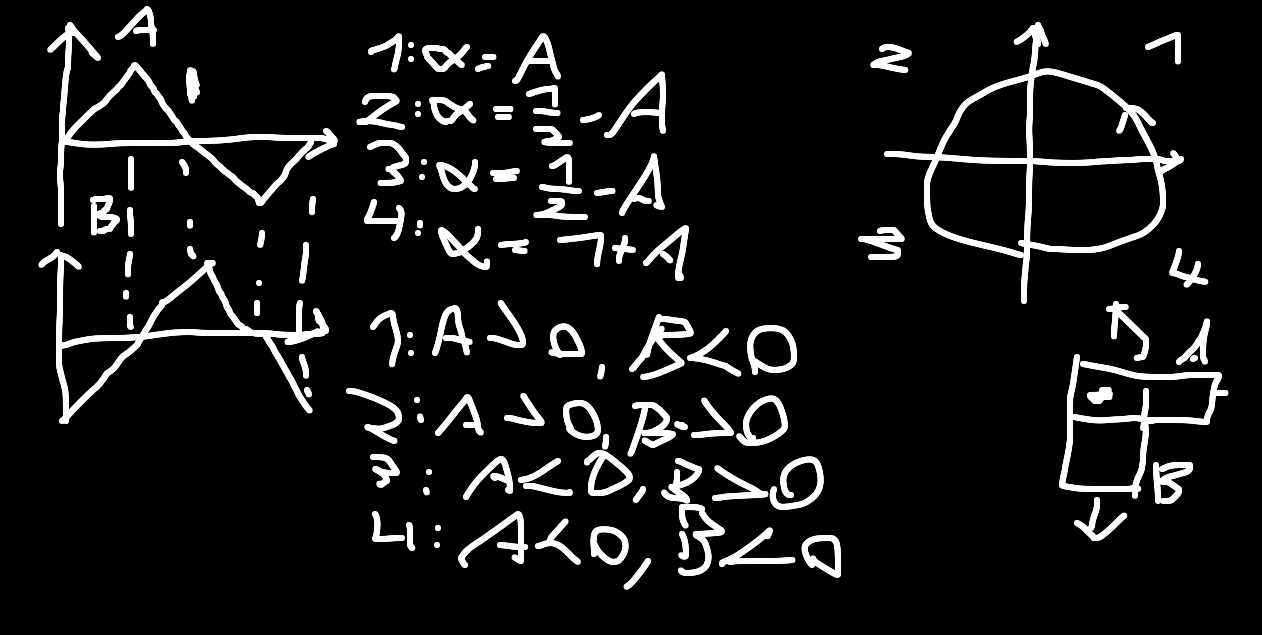 A
B
1: α = A
2: α = 1/2 - A
3: α = 1/2 - A
4: α = 1 + A
1: A > 0, B < 0
2: A > 0, B > 0
3: A < 0, B > 0
4: A < 0, B < 0
2 1
3 4
A
B